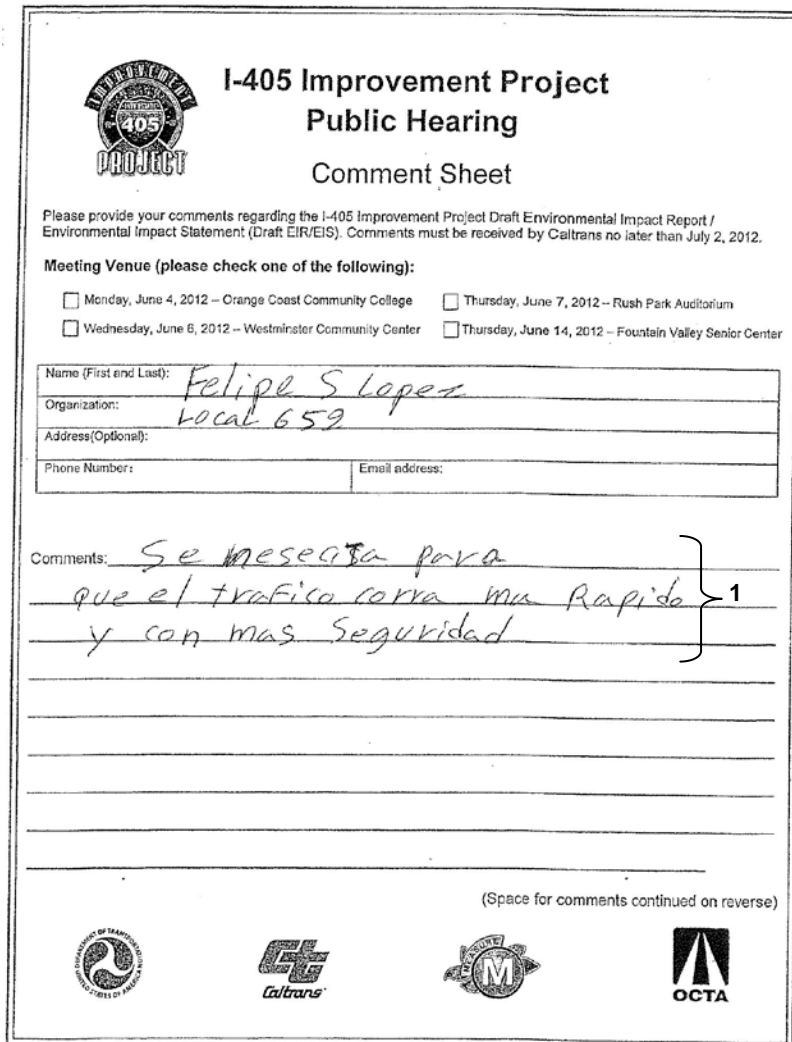 IMPROVEMENT
INTERSTATE
405
PROJECT
I-405 Improvement Project
Public Hearing
Comment Sheet
Please provide your comments regarding the I-405 Improvement Project Draft Environmental Impact Report /
Environmental Impact Statement (Draft EIR/EIS). Comments must be received by Caltrans no later than July 2, 2012.
Meeting Venue (please check one of the following):
Monday, June 4, 2012 – Orange Coast Community College
Thursday, June 7, 2012 – Rush Park Auditorium
Wednesday, June 6, 2012 – Westminster Community Center
Thursday, June 14, 2012 – Fountain Valley Senior Center
Name (First and Last): Felipe S Lopez
Organization: Local 652
Address(Optional):
Phone Number:
Email address:
Comments: Se nesecita para
que el trafico corra ma Rapido
y con mas Seguridad
1
(Space for comments continued on reverse)
DEPARTMENT OF TRANSPORTATION
UNITED STATES OF AMERICA
Caltrans
MEASURE
M
OCTA